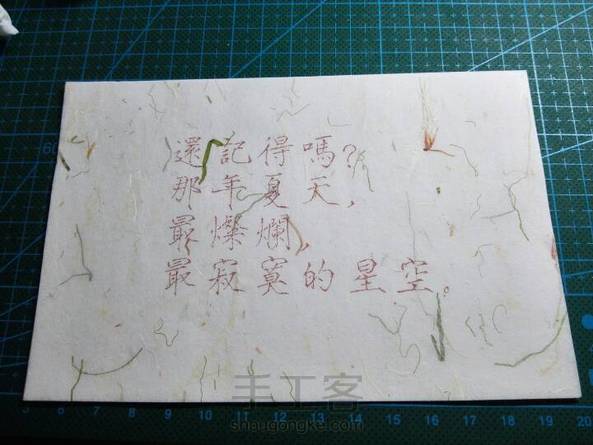 還記得嗎？
那年夏天，
最燦爛，
最寂寞的星空。
60
6 7 8 9 10 11 12 13 14 15 16 17 18 19 20
手工客
shougongke.com